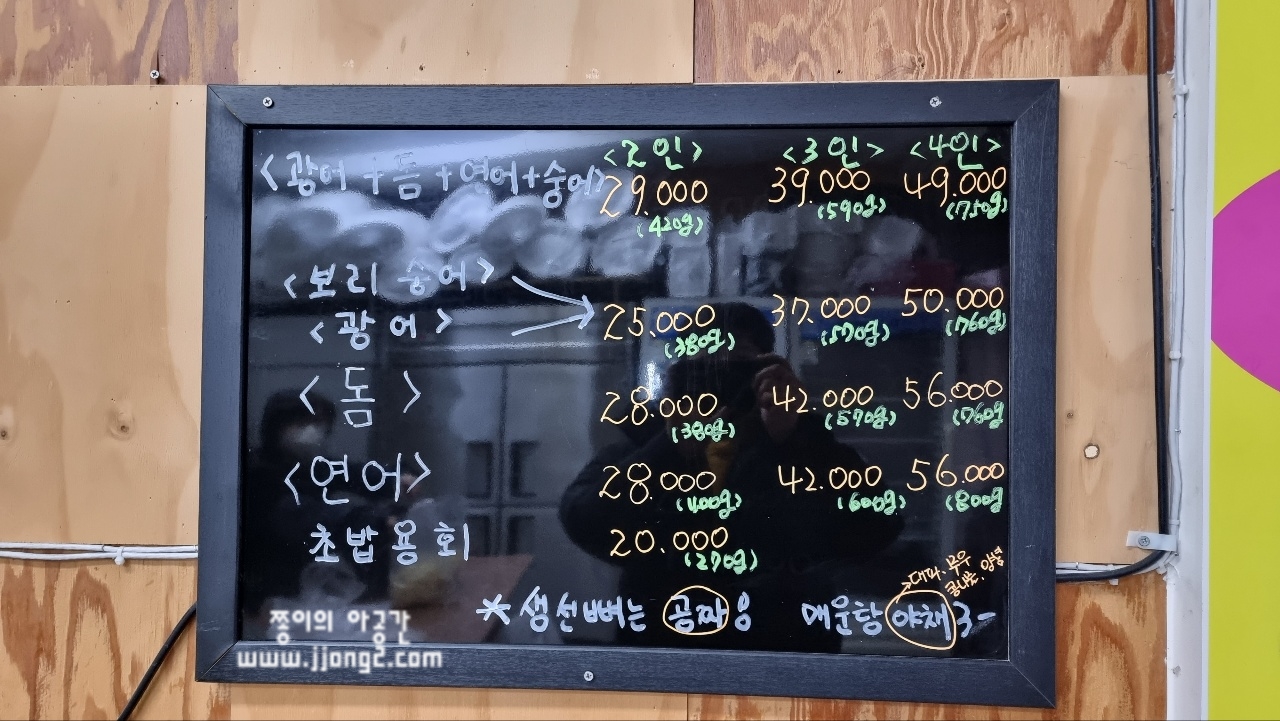 <2인> <3인> <4인>
<광어+돔+연어+숭어> 29.000 39.000 49.000
(420g) (590g) (750g)
<보리숭어>
<광어> 25.000 37.000 50.000
(380g) (570g) (760g)
<돔> 28.000 42.000 56.000
(380g) (570g) (760g
<연어> 28.000 42.000 56.000
(400g) (600g) (800g)
초밥용회 20.000
(270g)
대파, 무우
콩나물, 양념
*생선뼈는 공짜! 매운탕 야채 3-
쫑이의 아공간
www.jjong2.com